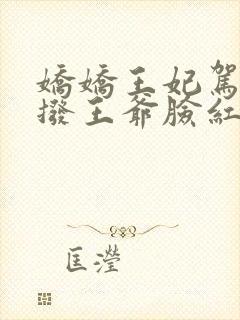 嬌嬌王妃駕
撥王爺臉紅
匡瀅